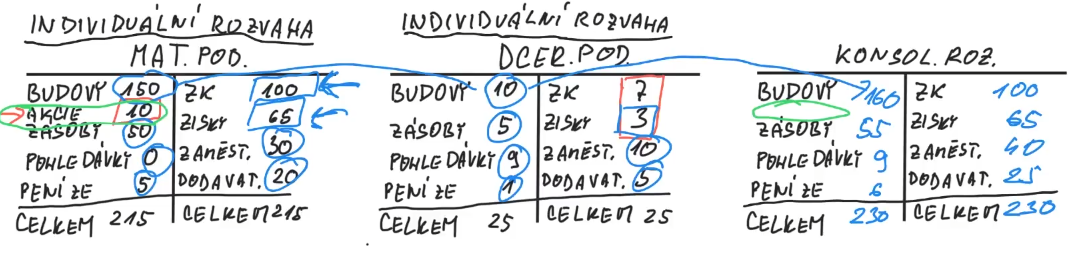 INDIVIDUÁLNÍ ROZVAHA
MAT. POD.
BUDOVY 150 ZK 100
AKCIE 10
ZÁSOBY 50 ZISKY 65
POHLEDÁVKY 0 ZAMĚST. 30
PENÍZE 5 DODAVAT. 20
CELKEM 215 CELKEM 215
INDIVIDUÁLNÍ ROZVAHA
DCER. POD.
BUDOVY 10 ZK 7
ZÁSOBY 5 ZISKY 3
POHLEDÁVKY 9 ZAMĚST. 10
PENÍZE 1 DODAVAT. 5
CELKEM 25 CELKEM 25
KONSOL. ROZ.
BUDOVY 160 ZK 100
ZÁSOBY 55 ZISKY 65
POHLEDÁVKY 9 ZAMĚST. 40
PENÍZE 6 DODAVAT. 25
CELKEM 230 CELKEM 230